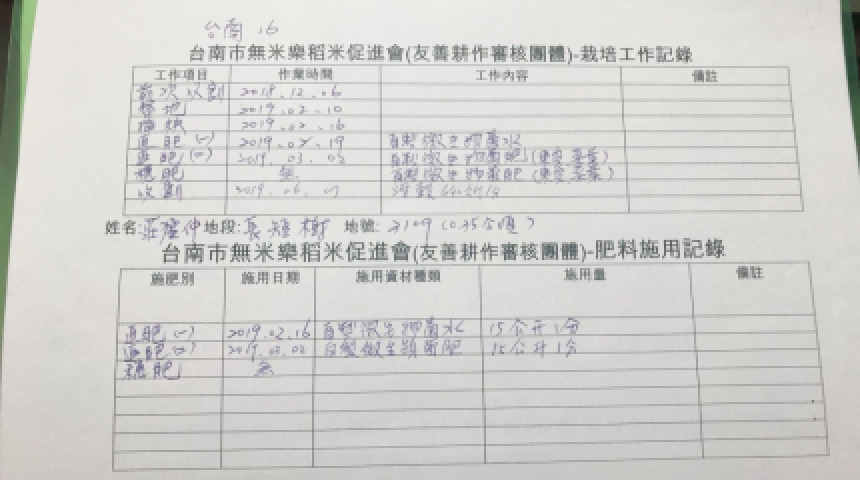 台南 16
台南市無米樂稻米促進會(友善耕作審核團體)-栽培工作記錄
工作項目 作業時間 工作內容 備註
前次收割 2018.12.06
整地 2019.02.10
插秧 2019.02.16
追肥(一) 2019.02.19 自製微生物菌水
追肥(二) 2019.03.02 自製微生物菌肥
穗肥 無 自製微生物菌肥
收割 2019.06.
姓名: 地段:長短樹 地號: 2109 (0.35公頃)
台南市無米樂稻米促進會(友善耕作審核團體)-肥料施用記錄
施肥別 施用日期 施用資材種類 施用量 備註
追肥(一) 2019.02.16 自製微生物菌水 15公升1分
追肥(二) 2019.03.02 自製微生 菌肥 15公升1分
穗肥 無